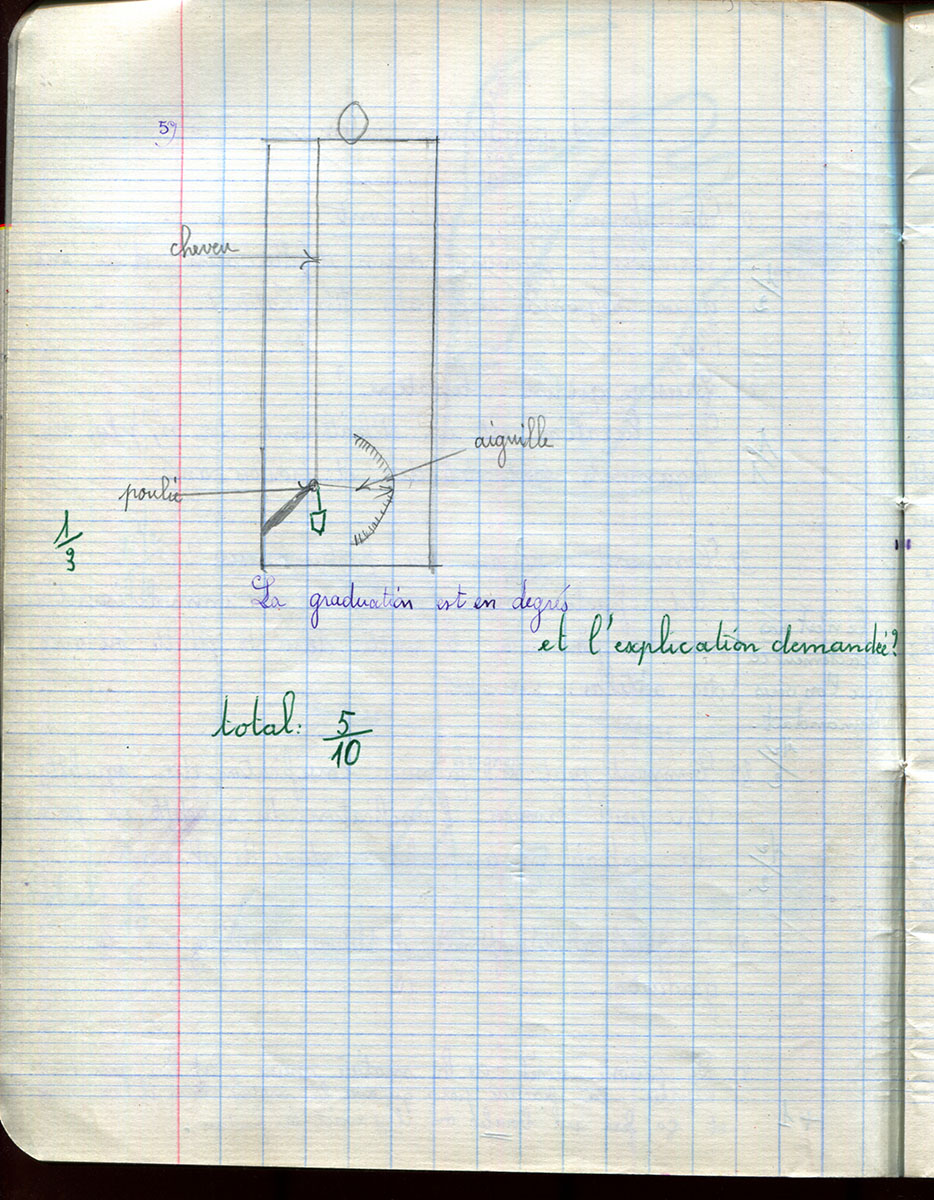 5)
cheveu
aiguille
poulie
1/3
La graduation est en degrés
et l'explication demandée?
total: 5/10